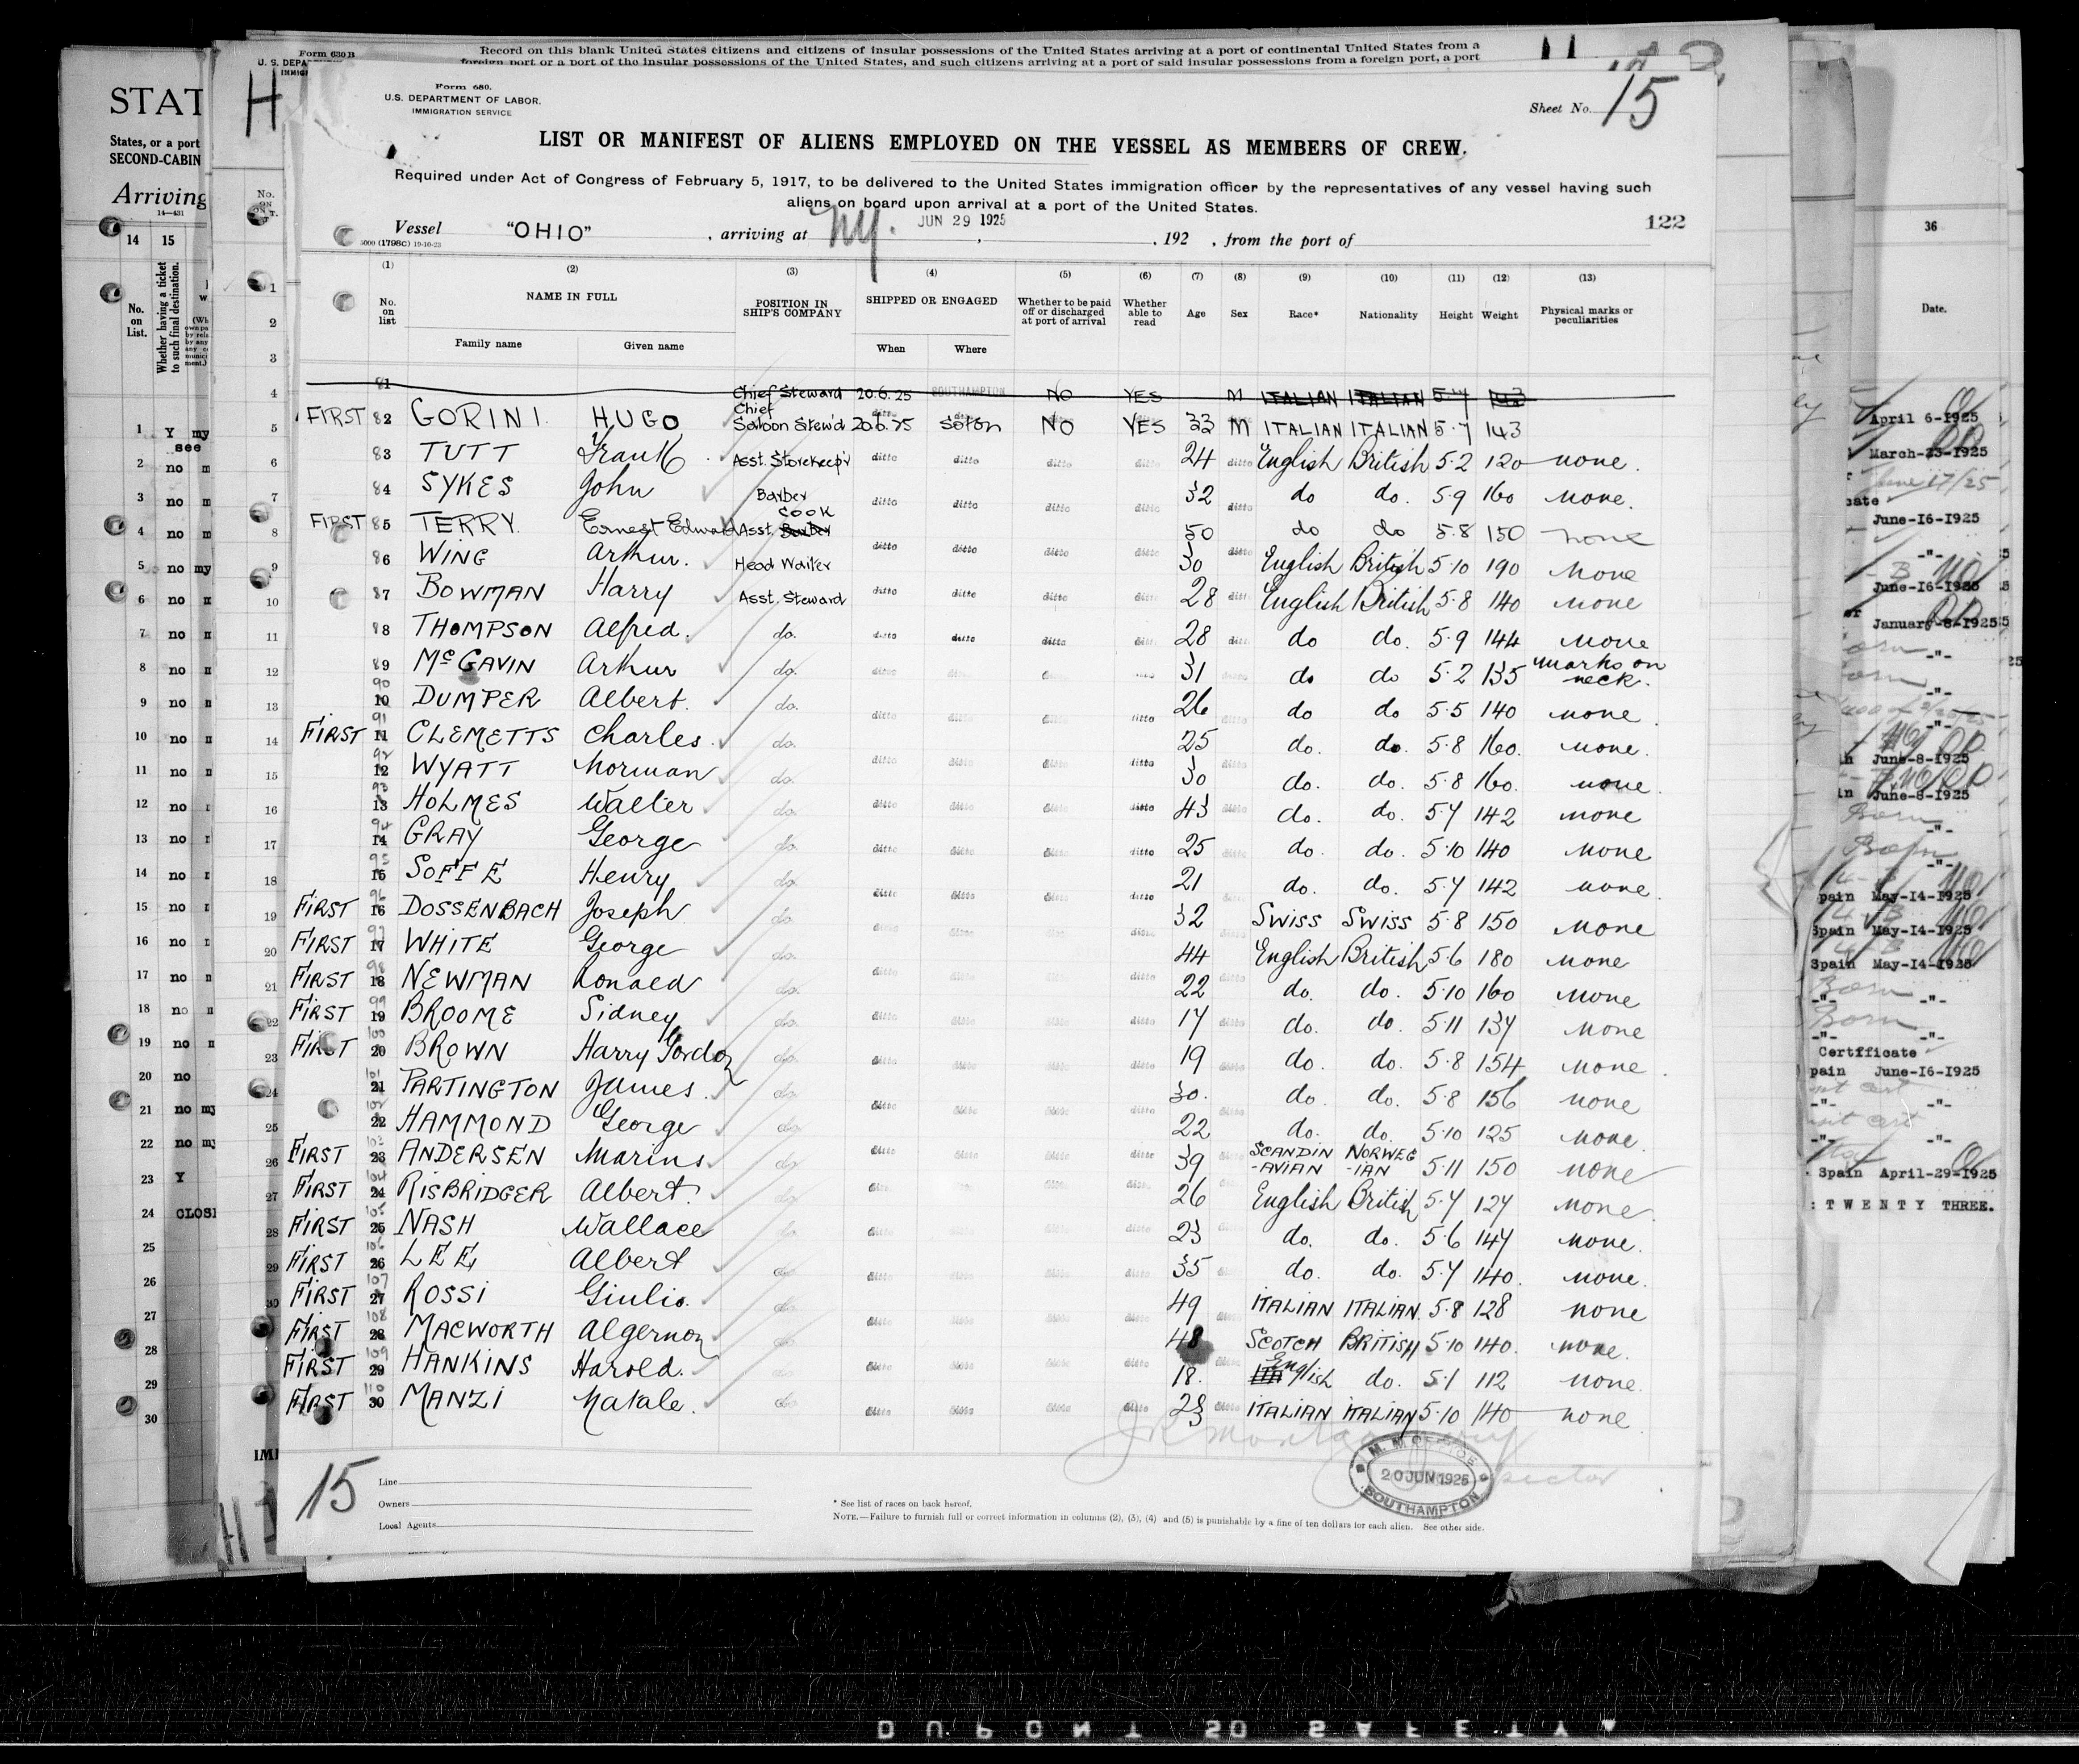 Form 630 B
U. S. DEPA
IMMIG
Record on this blank United States citizens and citizens of insular possessions of the United States arriving at a port of continental United States from a
foreign port or a port of the insular possessions of the United States, and such citizens arriving at a port of said insular possessions from a foreign port, a port
STAT
States, or a port
SECOND-CABIN
Arriving
14—431
Form 680.
U.S. DEPARTMENT OF LABOR.
IMMIGRATION SERVICE
Sheet No. 15
LIST OR MANIFEST OF ALIENS EMPLOYED ON THE VESSEL AS MEMBERS OF CREW.
Required under Act of Congress of February 5, 1917, to be delivered to the United States immigration officer by the representatives of any vessel having such
aliens on board upon arrival at a port of the United States.
122
Vessel "OHIO", arriving at NY. JUN 29 1925, 192 , from the port of
5000 (1798C) 19-10-23
(1) (2) (3) (4) (5) (6) (7) (8) (9) (10) (11) (12) (13)
No. on list NAME IN FULL POSITION IN SHIP'S COMPANY SHIPPED OR ENGAGED Whether to be paid off or discharged at port of arrival Whether able to read Age Sex Race* Nationality Height Weight Physical marks or peculiarities
Family name Given name When Where
81 Chief Steward 20.6.25 SOUTHAMPTON NO YES M ITALIAN ITALIAN 5.7 143
FIRST 82 GORINI HUGO Chief Saloon Stew'd 20.6.25 Soton NO YES 33 M ITALIAN ITALIAN 5.7 143
83 TUTT Frank Asst. Storekeep'r ditto ditto ditto ditto 24 ditto English British 5.2 120 none.
84 SYKES John Barber ditto ditto ditto ditto 32 ditto do do. 5.9 160 none.
FIRST 85 TERRY. Ernest Edward Asst. Barber COOK 50 do do 5.8 150 none
86 WING Arthur. Head Waiter ditto ditto ditto ditto 30 ditto English British 5.10 190 none
87 BOWMAN Harry Asst. Steward ditto ditto ditto ditto 28 ditto English British 5.8 140 none
88 THOMPSON Alfred. do. ditto ditto ditto ditto 28 ditto do do. 5.9 144 none
89 McGAVIN Arthur do. 31 do do 5.2 135 marks on neck.
90 10 DUMPER Albert. do. ditto ditto ditto ditto 26 do do 5.5 140 none.
FIRST 91 11 CLEMETTS Charles. do. 25 do. do. 5.8 160. none.
92 12 WYATT Norman do. ditto ditto ditto ditto 30 do. do. 5.8 160. none.
93 13 HOLMES Walter do. ditto ditto ditto ditto 43 ditto do. do. 5.7 142 none
94 14 GRAY George do. ditto ditto ditto ditto 25 do. do. 5.10 140 none
95 15 SOFFE Henry do. ditto ditto ditto ditto 21 do. do. 5.7 142 none
FIRST 96 16 DOSSENBACH Joseph do. 32 SWISS SWISS 5.8 150 none
FIRST 97 17 WHITE George do. 44 English British 5.6 180 none
FIRST 98 18 NEWMAN Ronald do. 22 do. do. 5.10 160 none
FIRST 99 19 BROOME Sidney do. 17 do. do. 5.11 137 none
FIRST 100 20 BROWN Harry Gordon do. 19 do. do. 5.8 154 none.
101 21 PARTINGTON James. do. 30. do. do. 5.8 156 none
102 22 HAMMOND George do. 22 do. do. 5.10 125 none.
FIRST 103 23 ANDERSEN Marius do. 39 SCANDIN -AVIAN NORWEG -IAN 5.11 150 none
FIRST 104 24 RISBRIDGER Albert. do. 26 English British 5.7 127 none.
FIRST 105 25 NASH Wallace do. 23 do. do. 5.6 147 none.
FIRST 106 26 LEE Albert do. 35 do. do. 5.7 140. none.
FIRST 107 27 ROSSI Giulio. do. 49 ITALIAN ITALIAN. 5.8 128 none
FIRST 108 28 MACWORTH Algernon do. 48 SCOTCH BRITISH 5.10 140. none.
FIRST 109 29 HANKINS Harold. do. 18. English do. 5.1 112 none.
FIRST 110 30 MANZI Natale. do. 28 ITALIAN ITALIAN 5.10 140 none
20 JUN 1925
SOUTHAMPTON
15
Line
Owners
Local Agents
* See list of races on back hereof.
NOTE.—Failure to furnish full or correct information in columns (2), (3), (4) and (5) is punishable by a fine of ten dollars for each alien. See other side.
36
Date.
April 6-1925
March-23-1925
June 17/25
June-16-1925
June-16-1925
January-8-1925
June-8-1925
June-8-1925
pain May-14-1925
Spain May-14-1925
Spain May-14-1925
Born
Certificate
pain June-16-1925
Spain April-29-1925
: TWENTY THREE.
DUPONT SAFETY